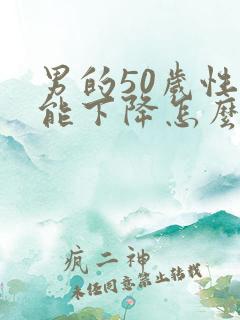 男的50歲性
能下降怎麼
疯二神
未经同意禁止转载